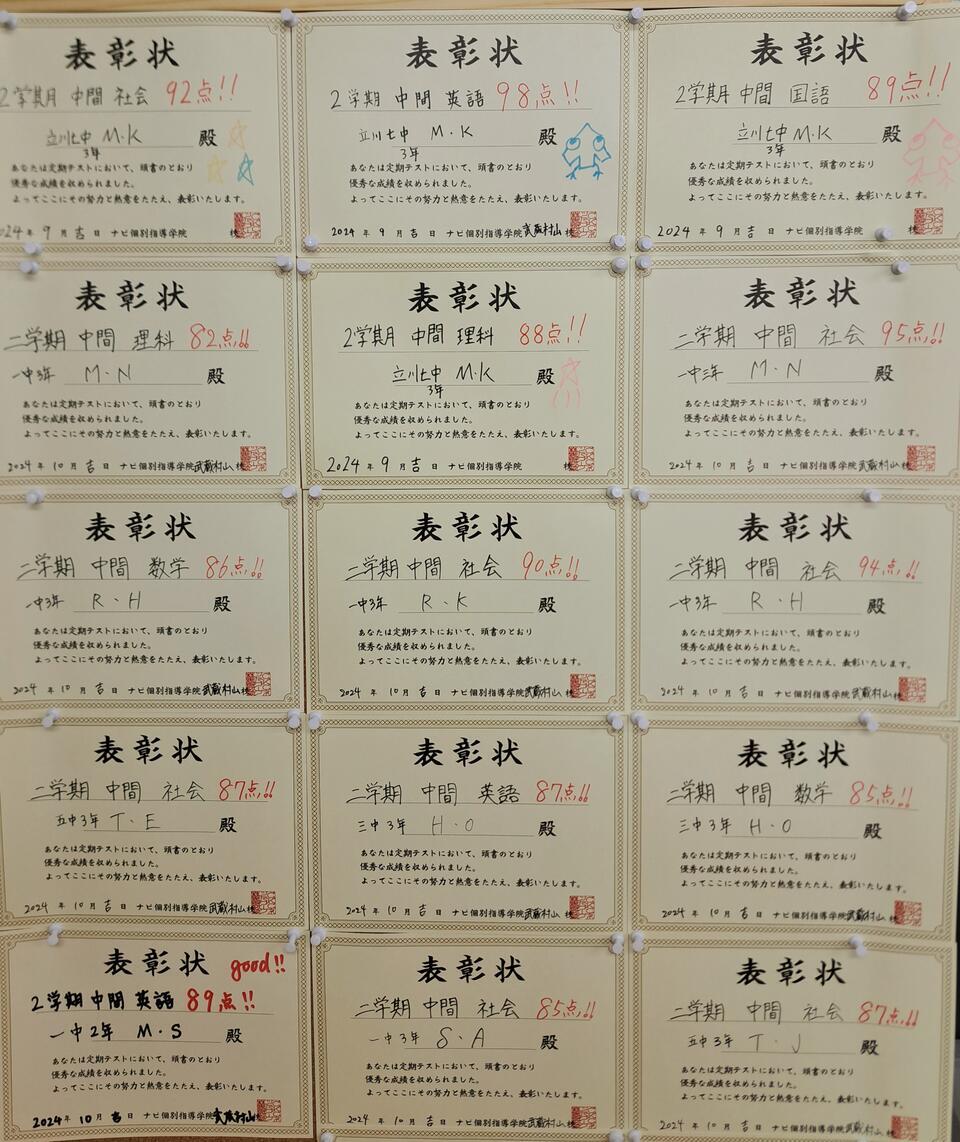 表彰状
2学期月 中間 社会 92点!!
立川七中 M・K 殿
3年
あなたは定期テストにおいて、頭書のとおり
優秀な成績を収められました。
よってここにその努力と熱意をたたえ、表彰いたします。
2024年 9月 吉日 ナビ個別指導学院 校
表彰状
2学期 中間 英語 98点!!
立川七中 M・K 殿
3年
あなたは定期テストにおいて、頭書のとおり
優秀な成績を収められました。
よってここにその努力と熱意をたたえ、表彰いたします。
2024年 9月 吉日 ナビ個別指導学院 武蔵村山 校
表彰状
2学期 中間 国語 89点!!
立川七中 M・K 殿
3年
あなたは定期テストにおいて、頭書のとおり
優秀な成績を収められました。
よってここにその努力と熱意をたたえ、表彰いたします。
2024年 9月 吉日 ナビ個別指導学院
表彰状
二学期 中間 理科 82点!!
一中3年 M・N 殿
あなたは定期テストにおいて、頭書のとおり
優秀な成績を収められました。
よってここにその努力と熱意をたたえ、表彰いたします。
2024年 10月 吉日 ナビ個別指導学院 武蔵村山 校
表彰状
2学期 中間 理科 88点!!
立川七中 M・K 殿
3年
あなたは定期テストにおいて、頭書のとおり
優秀な成績を収められました。
よってここにその努力と熱意をたたえ、表彰いたします。
2024年 9月 吉日 ナビ個別指導学院 校
表彰状
二学期 中間 社会 95点!!
一中三年 M・N 殿
あなたは定期テストにおいて、頭書のとおり
優秀な成績を収められました。
よってここにその努力と熱意をたたえ、表彰いたします。
2024年 10月 吉日 ナビ個別指導学院 武蔵村山 校
表彰状
二学期 中間 数学 86点!!
一中3年 R・H 殿
あなたは定期テストにおいて、頭書のとおり
優秀な成績を収められました。
よってここにその努力と熱意をたたえ、表彰いたします。
2024年 10月 吉日 ナビ個別指導学院 武蔵村山 校
表彰状
二学期 中間 社会 90点!!
一中3年 R・K 殿
あなたは定期テストにおいて、頭書のとおり
優秀な成績を収められました。
よってここにその努力と熱意をたたえ、表彰いたします。
2024年 10月 吉日 ナビ個別指導学院 武蔵村山 校
表彰状
二学期 中間 社会 94点!!
一中3年 R・H 殿
あなたは定期テストにおいて、頭書のとおり
優秀な成績を収められました。
よってここにその努力と熱意をたたえ、表彰いたします。
2024年 10月 吉日 ナビ個別指導学院 武蔵村山 校
表彰状
二学期 中間 社会 87点!!
五中3年 T・E 殿
あなたは定期テストにおいて、頭書のとおり
優秀な成績を収められました。
よってここにその努力と熱意をたたえ、表彰いたします。
2024年 10月 吉日 ナビ個別指導学院 武蔵村山 校
表彰状
二学期 中間 英語 87点!!
三中3年 H・O 殿
あなたは定期テストにおいて、頭書のとおり
優秀な成績を収められました。
よってここにその努力と熱意をたたえ、表彰いたします。
2024年 10月 吉日 ナビ個別指導学院 武蔵村山 校
表彰状
二学期 中間 数学 85点!!
三中3年 H・O 殿
あなたは定期テストにおいて、頭書のとおり
優秀な成績を収められました。
よってここにその努力と熱意をたたえ、表彰いたします。
2024年 10月 吉日 ナビ個別指導学院 武蔵村山 校
表彰状 good!!
2学期 中間 英語 89点!!
一中2年 M・S 殿
あなたは定期テストにおいて、頭書のとおり
優秀な成績を収められました。
よってここにその努力と熱意をたたえ、表彰いたします。
2024年 10月 吉日 ナビ個別指導学院 武蔵村山 校
表彰状
二学期 中間 社会 85点!!
一中3年 S・A 殿
あなたは定期テストにおいて、頭書のとおり
優秀な成績を収められました。
よってここにその努力と熱意をたたえ、表彰いたします。
2024年 10月 吉日 ナビ個別指導学院 武蔵村山 校
表彰状
二学期 中間 社会 87点!!
五中3年 T・J 殿
あなたは定期テストにおいて、頭書のとおり
優秀な成績を収められました。
よってここにその努力と熱意をたたえ、表彰いたします。
2024年 10月 吉日 ナビ個別指導学院 武蔵村山 校